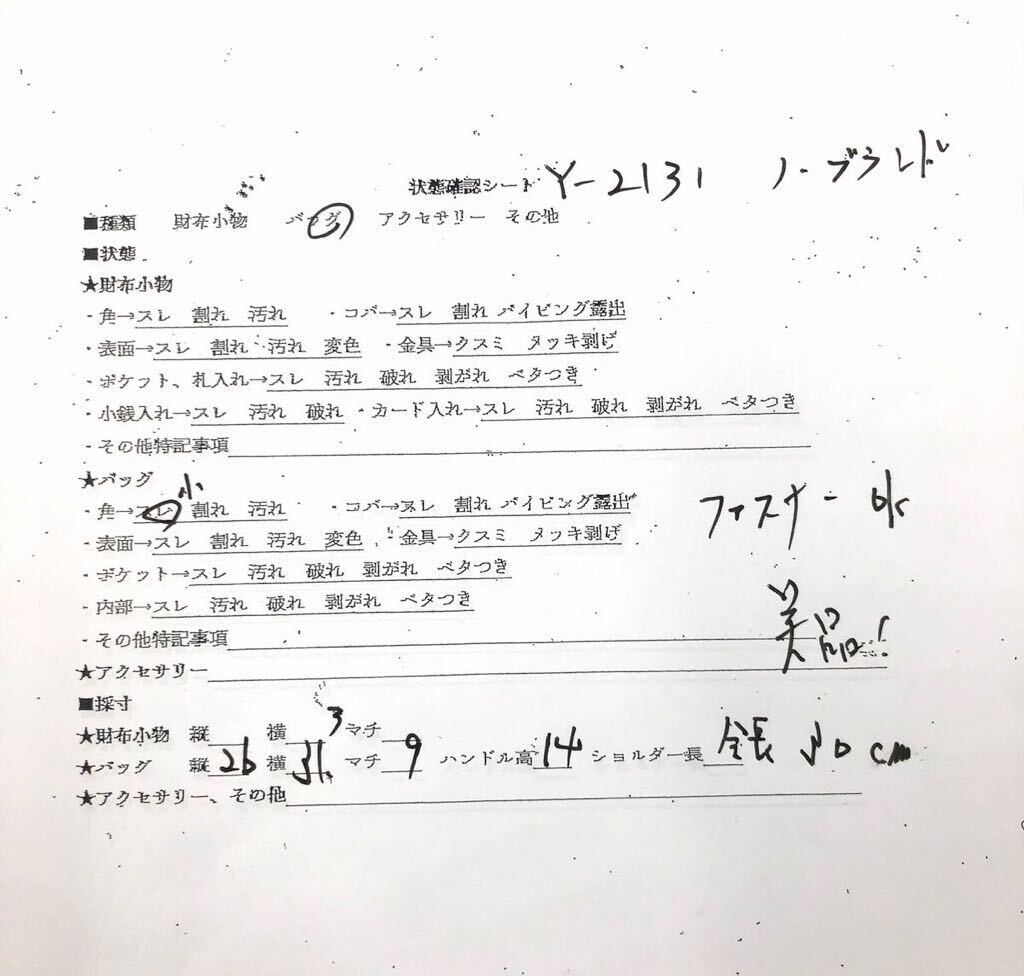 状態確認シート Y-2131 ノーブランド
■種類 財布小物 バッグ アクセサリー その他
■状態
★財布小物
・角→スレ 割れ 汚れ ・コバ→スレ 割れ パイピング露出
・表面→スレ 割れ 汚れ 変色 ・金具→クスミ メッキ剥げ
・ポケット、札入れ→スレ 汚れ 破れ 剥がれ ベタつき
・小銭入れ→スレ 汚れ 破れ ・カード入れ→スレ 汚れ 破れ 剥がれ ベタつき
・その他特記事項
★バッグ 小
・角→スレ 割れ 汚れ ・コバ→スレ 割れ パイピング露出
ファスナー ok
・表面→スレ 割れ 汚れ 変色 ・金具→クスミ メッキ剥げ
・ポケット→スレ 汚れ 破れ 剥がれ ベタつき
・内部→スレ 汚れ 破れ 剥がれ ベタつき
・その他特記事項 美品!
★アクセサリー
■採寸
★財布小物 縦 横 3 マチ
★バッグ 縦26 横31. マチ9 ハンドル高14 ショルダー長 全長 cm
★アクセサリー、その他